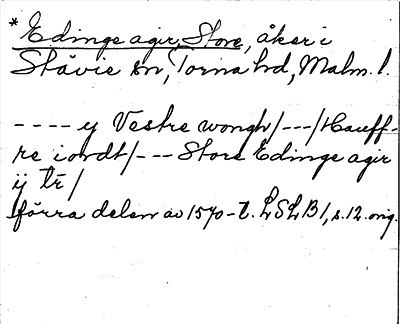 * Edinge agir, Store, åker i
Stävie sn, Torna hd, Malm. l.
---- y Vestre wongh/---/Hauff-
re iordt/---Store Edinge agir
ij tr̄ /
förra delen av 1570-t. LSLB 1, s. 12. orig.